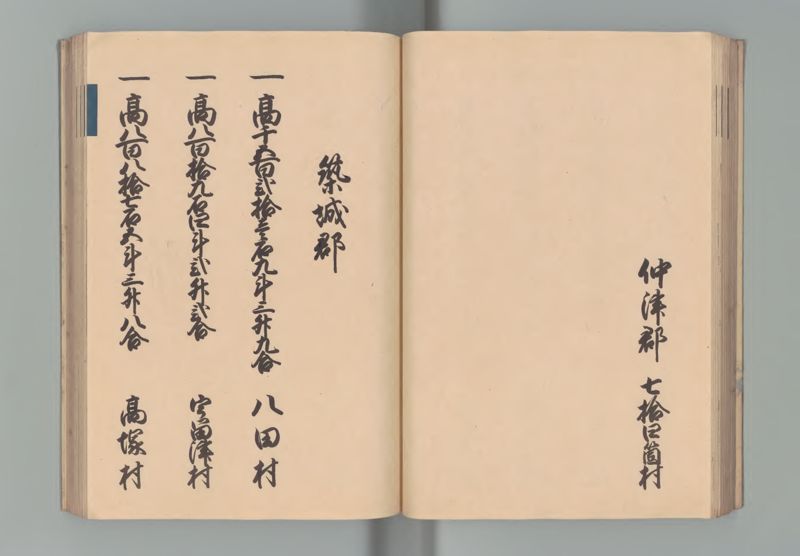 仲津郡 七拾四箇村
築城郡
一 高千五百弐拾壱石九斗三升九合 八田村
一 高八百拾九石四斗弐升弐合 宇留津村
一 高八百八拾七石五斗三升八合 高塚村